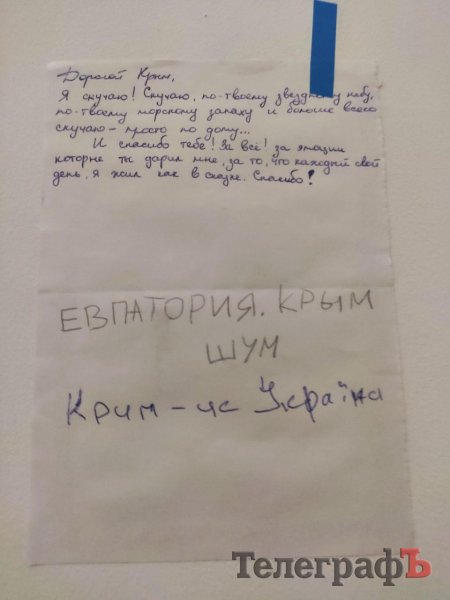 Дорогой Крым,
Я скучаю! Скучаю, по-твоему звездному небу,
по-твоему морскому запаху и больше всего
скучаю – просто по дому...
И спасибо тебе! За всё! за эмоции
которые ты дарил мне, за то, что каждый свой
день, я жил как в сказке. Спасибо!
ЕВПАТОРИЯ. КРЫМ
ШУМ
Крим – це Україна
ТелеграфЪ